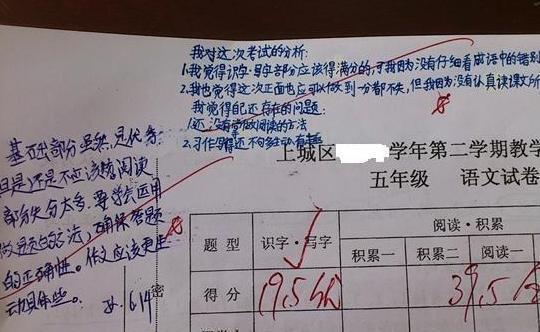 我对这次考试的分析:
1.我觉得识字·写字部分应该得满分的,可我因为没有仔细看成语中的错别
2.我也觉得这次正面也应可以做到一分都不失,但我因为没有认真读课文所
我觉得自己还存在的问题:
1.还没有掌做阅读的方法
2.习作写得还不够生动有趣
上城区 学年第二学期教学
五年级 语文试卷
基础部分虽然是优秀,
但是还是不应该的。阅读
部分失分太多,要学会运用
做题的方法,确保答题
的正确性。作文应该更生
动具体些。
6.14
密
题型 识字·写字 阅读·积累
积累一 积累二 阅读一
得分 19.5 39.5